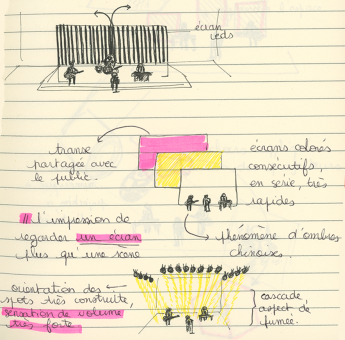 écran
leds
transe
partagée avec
le public.
écrans colorés
consécutifs,
en série, très
rapides
// l'impression de
regarder un écran
plus qu'une scène
phénomène d'ombres
chinoises.
orientation des
spots très construite,
sensation de volume
très forte
cascade,
aspect de
fumée.